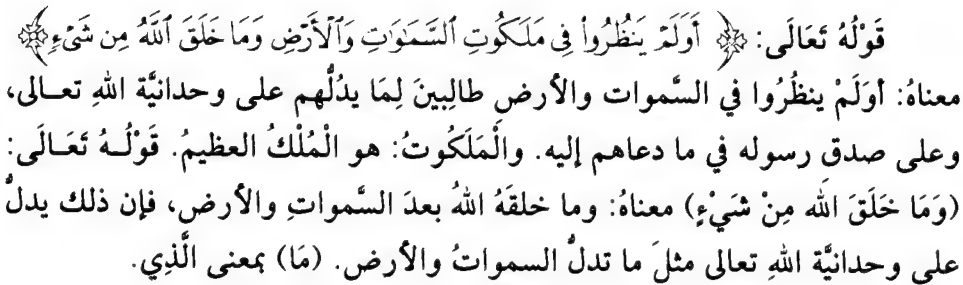 قَوْلُهُ تَعَالَى: ﴿ أَوَلَمْ يَنظُرُواْ فِى مَلَكُوتِ ٱلسَّمَـٰوَٰتِ وَٱلْأَرْضِ وَمَا خَلَقَ ٱللَّهُ مِن شَىْءٍ ﴾
معناهُ: أوَلَمْ ينظُرُوا في السَّموات والأرضِ طالِبينَ لِمَا يدُلُّهم على وحدانيَّة اللهِ تعـالى،
وعلى صدق رسوله في ما دعاهم إليه. والْمَلَكُوتُ: هو الْمُلْكُ العظيمُ. قَوْلُـهُ تَعَـالَى:
(وَمَا خَلَقَ الله مِنْ شَيْءٍ) معناهُ: وما خلقَهُ اللهُ بعدَ السَّمواتِ والأرضِ، فإن ذلك يدلُّ
على وحدانيَّة اللهِ تعالى مثلَ ما تدلُّ السمواتُ والأرض. (مَا) بمعنى الَّذِي.